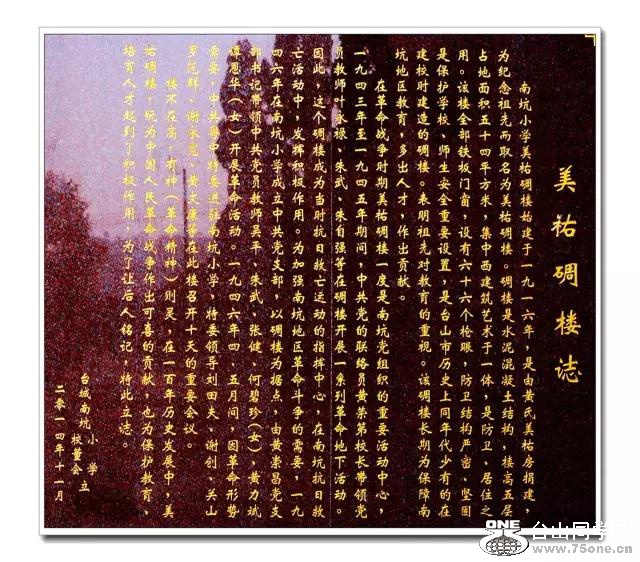 美祐碉楼志
南坑小学美祐碉楼始建于一九一六年，是由黄氏美祐房捐建，
为纪念祖先而取名为美祐碉楼。碉楼是水泥混凝土结构，楼高五层
占地面积五十四平方米，集中西建筑艺术于一体，是防卫、居住之
用。该楼全部铁板门窗，设有六十六个枪眼，防卫结构严密、坚固
是保护学校、师生安全重要设置，是台山市历史上同年代少有的在
建校时建造的碉楼。表明祖先对教育的重视。该碉楼长期为保障南
坑地区教育，多出人才，作出贡献。
在革命战争时期美祐碉楼一度是南坑党组织的重要活动中心，
一九四三年至一九四五年期间，中共党的联络员黄荣第校长带领党
员教师叶永禄、朱武、朱自强等在碉楼开展一系列革命地下活动。
因此，这个碉楼成为当时抗日救亡运动的指挥中心，在南坑抗日救
亡活动中，发挥积极作用。为加强南坑地区革命斗争的需要，一九
四六年在南坑小学成立中共党支部，以碉楼为据点，由黄崇昌党支
部书记带领中共党员教师吴平、朱武、张健、何碧珍（女）、黄力斌
谭恩华（女）开展革命活动。一九四六年四、五月间，因革命形势
需要，中共粤中特委进驻南坑小学，特委领导刘田夫、谢创、关山
罗范群、谢永宽、黄文康等在此楼召开十天的重要会议。
楼不在高，有神（革命精神）则灵，在一百年历史发展中，美
祐碉楼，既为中国人民革命战争作出可喜的贡献，也为保护教育，
培育人才起到了积极作用，为了让后人铭记，特此立志。
台城南坑小学校董会立
二零一四年十一月
ONE
台山同学网
www.75one.cn